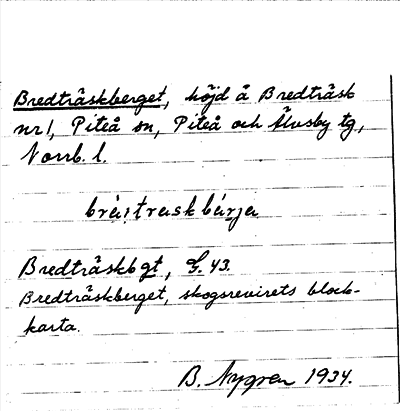 Bredträskberget, höjd å Bredträsk
nr 1, Piteå sn, Piteå och Älvsby tg,
Norrb. l.
brè:traskbárja
Bredträskbgt, G. 43.
Bredträskberget, skogsrevirets block-
karta.
B. Nygren 1934.